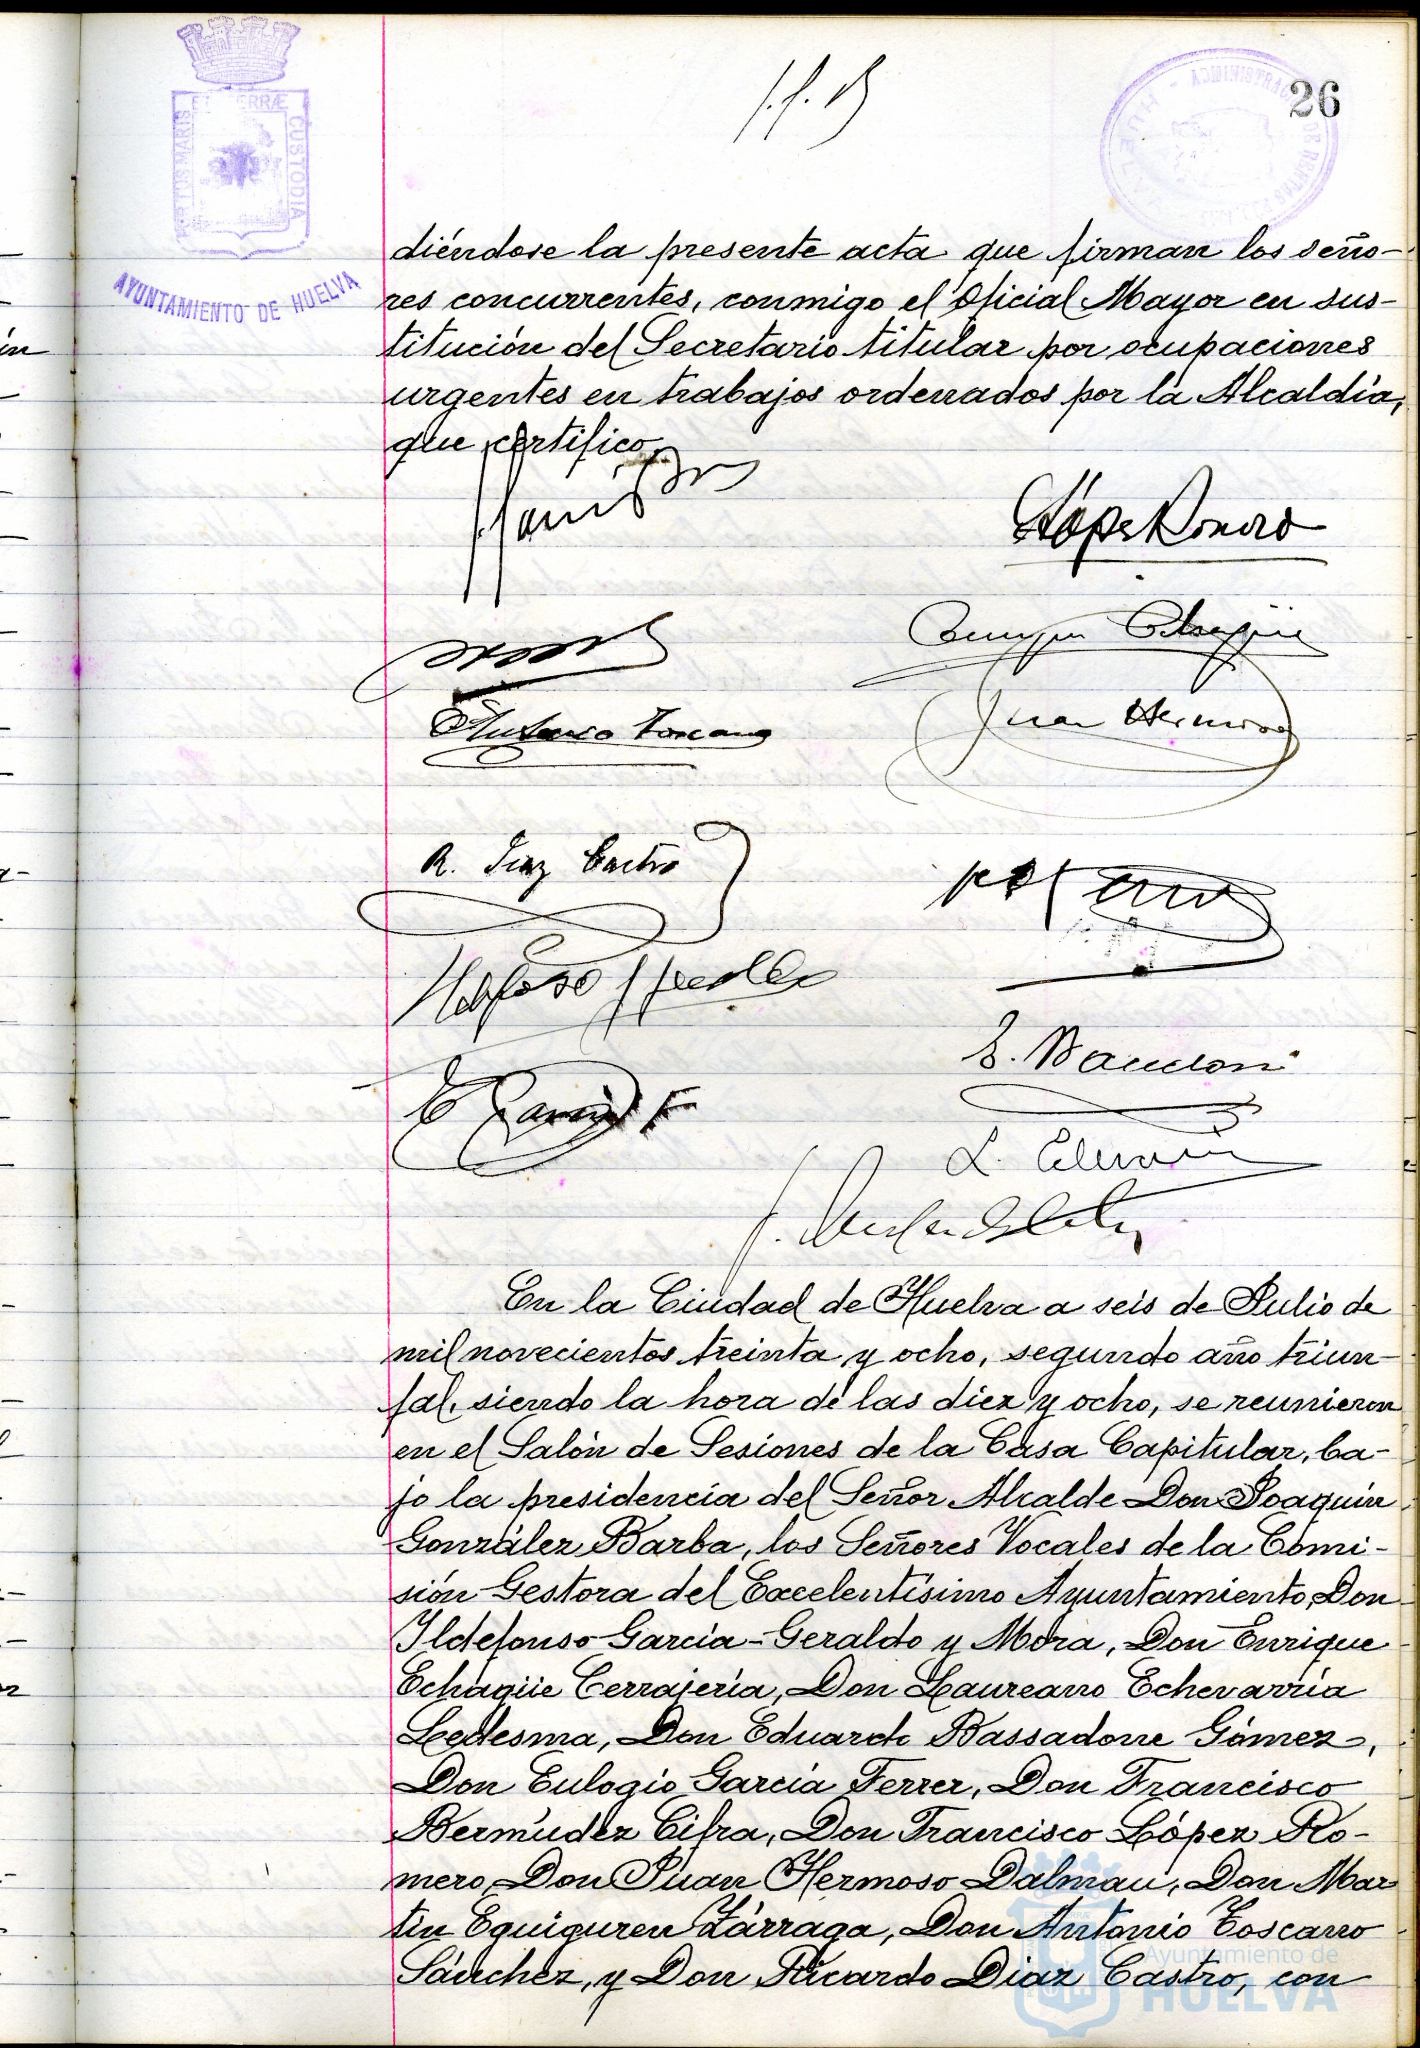 26
PORTUS MARIS ET TERRÆ CUSTODIA
AYUNTAMIENTO DE HUELVA
diéndose la presente acta que firman los seño-
res concurrentes, conmigo el Oficial Mayor en sus-
titución del Secretario titular por ocupaciones
urgentes en trabajos ordenados por la Alcaldía,
que certifico.
López Romero
Antonio Toscano
Juan Hermoso
R. Diaz Castro
En la Ciudad de Huelva a seis de Julio de
mil novecientos treinta y ocho, segundo año triun-
fal, siendo la hora de las diez y ocho, se reunieron
en el Salón de Sesiones de la Casa Capitular, ba-
jo la presidencia del Señor Alcalde Don Joaquín
González Barba, los Señores Vocales de la Comi-
sión Gestora del Excelentísimo Ayuntamiento, Don
Ildefonso García-Geraldo y Mora, Don Enrique
Echagüe Cerrajería, Don Laureano Echevarría
Ledesma, Don Eduardo Bassadone Gómez,
Don Eulogio García Ferrer, Don Francisco
Bermúdez Cifra, Don Francisco López Ro-
mero, Don Juan Hermoso Dalmau, Don Mar
tín Eguiguren Zárraga, Don Antonio Toscano
Sánchez, y Don Ricardo Díaz Castro, con
Ayuntamiento de
HUELVA